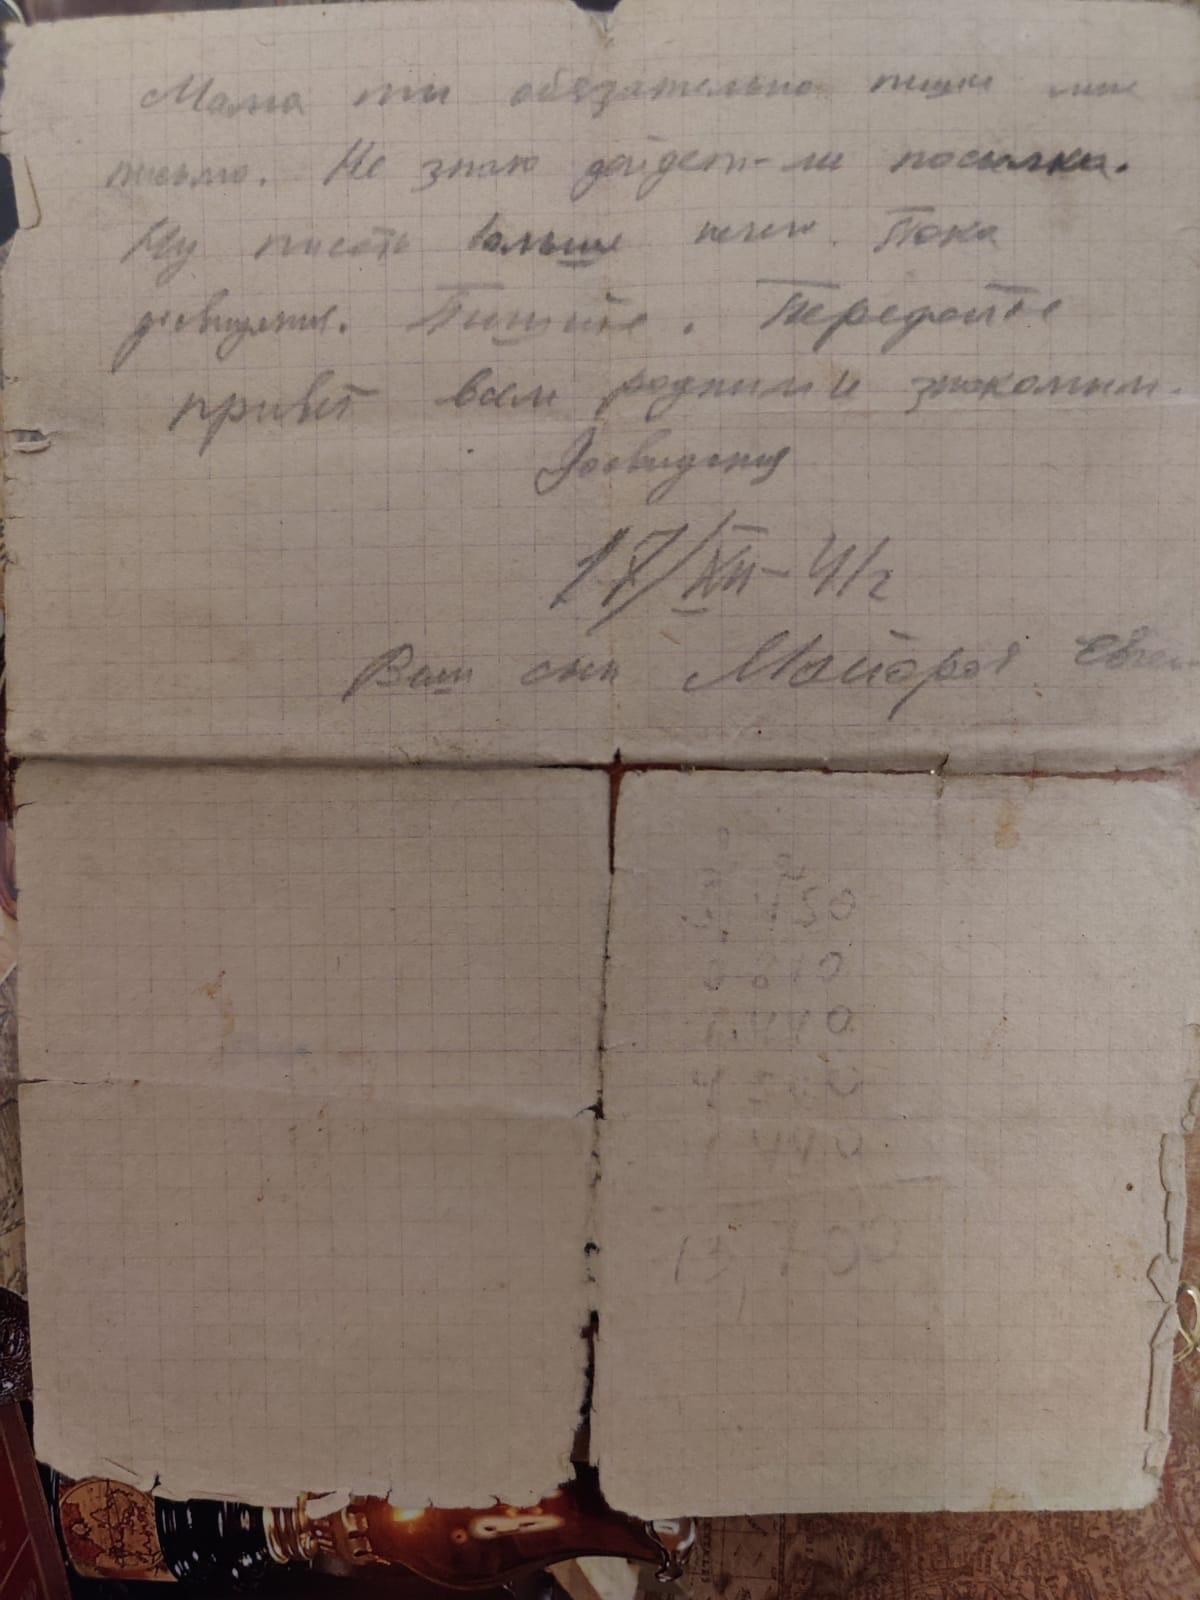 Мама ты обязательно пиши мне
письмо. Не знаю дойдет-ли посылка.
Ну писать больше нечего. Пока
досвидания. Пишите. Передайте
привет всем родным и знакомым.
Досвидания
17/XII-41г
Ваш сын Майоров